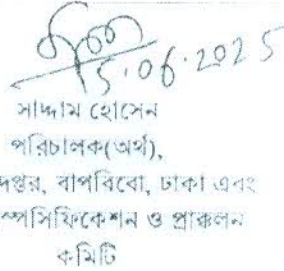 15.06.2025
সাদ্দাম হোসেন
পরিচালক(অর্থ),
দপ্তর, বাপবিবো, ঢাকা এবং
স্পেসিফিকেশন ও প্রাক্কলন
কমিটি